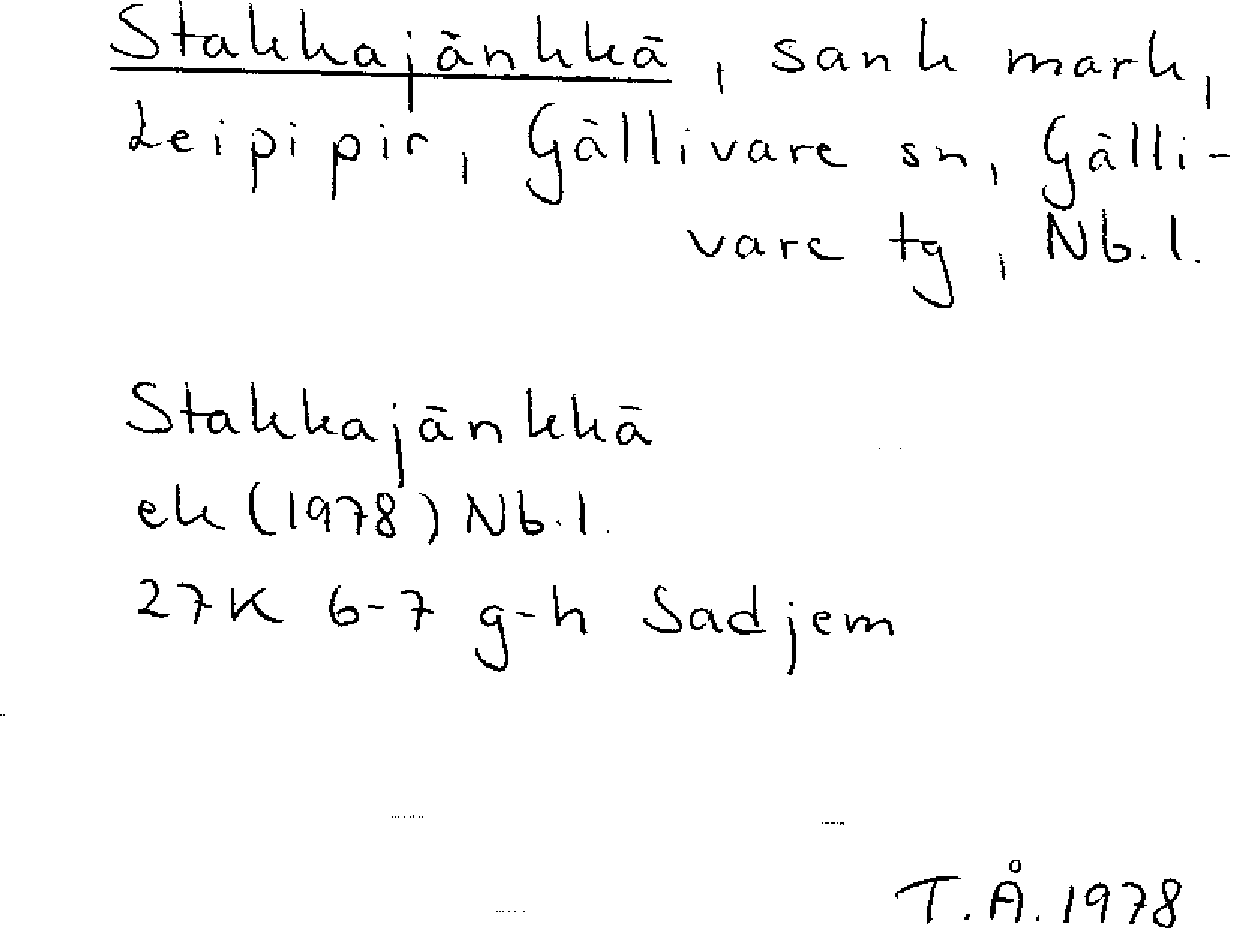 Stakkajänkkä, sank mark,
Leipipir, Gällivare sn, Gälli-
vare tg, Nb.l.
Stakkajänkkä
ek (1978) Nb.l.
27K 6-7 g-h Sadjem
T.Å. 1978